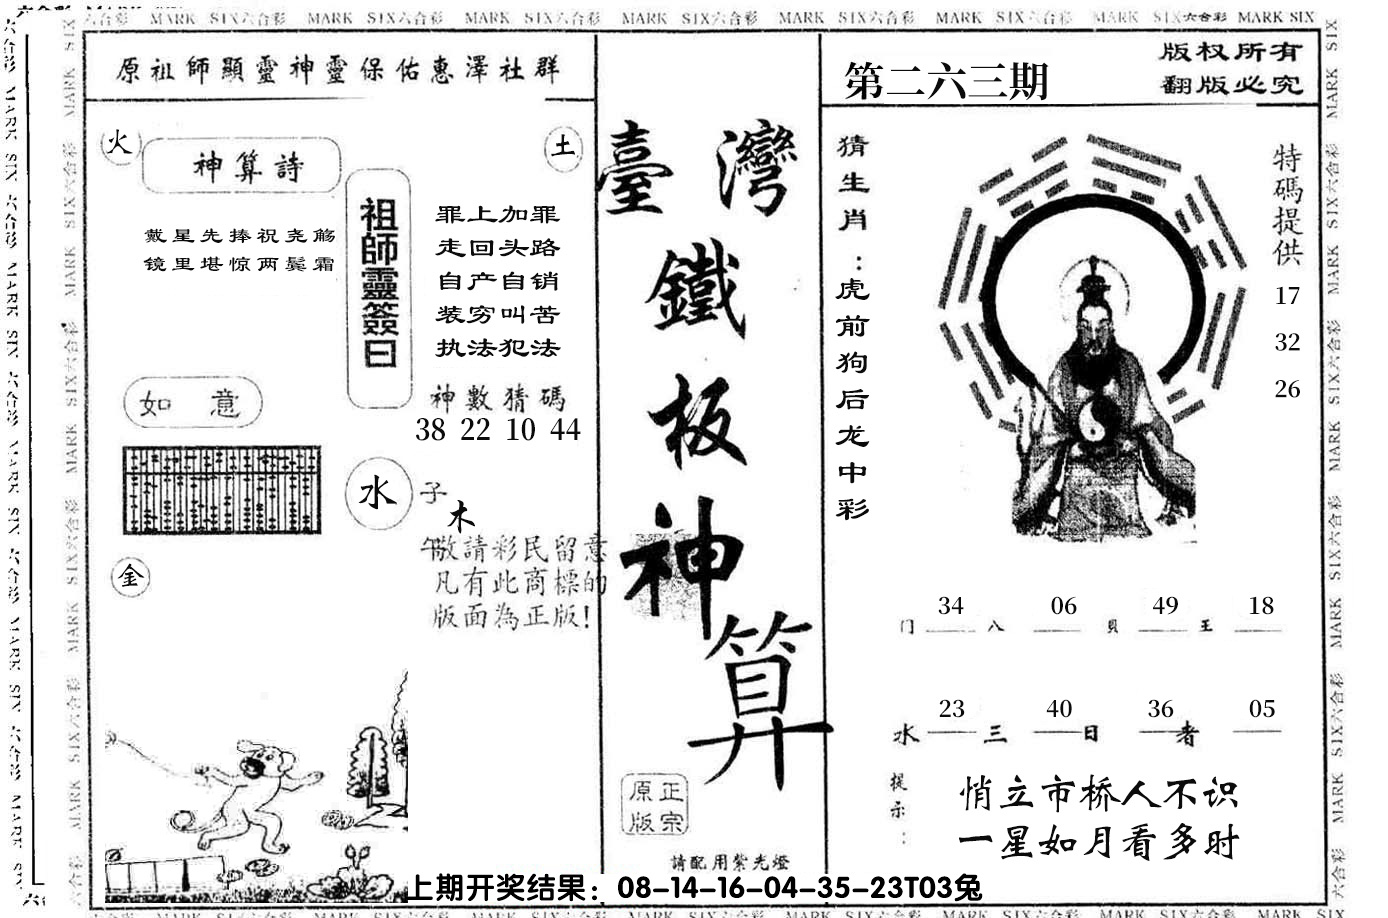 MARK SIX六合彩 MARK SIX六合彩 MARK SIX六合彩 MARK SIX六合彩 MARK SIX六合彩 MARK SIX六合彩 MARK SIX六合彩 MARK SIX
原祖師顯靈神靈保佑惠澤社群
火
神算詩
土
戴星先捧祝尧觞
镜里堪惊两鬓霜
祖師靈簽曰
罪上加罪
走回头路
自产自销
装穷叫苦
执法犯法
神數猜碼
38 22 10 44
如意
水
子
木
午
金
敬請彩民留意
凡有此商標的
版面為正版!
臺灣鐵板神算
正宗
原版
請配用紫光燈
第二六三期
版权所有
翻版必究
猜生肖:虎前狗后龙中彩
特碼提供
17
32
26
34 06 49 18
门 八 貝 王
23 40 36 05
水 三 日 者
提示:
悄立市桥人不识
一星如月看多时
上期开奖结果：08-14-16-04-35-23T03兔